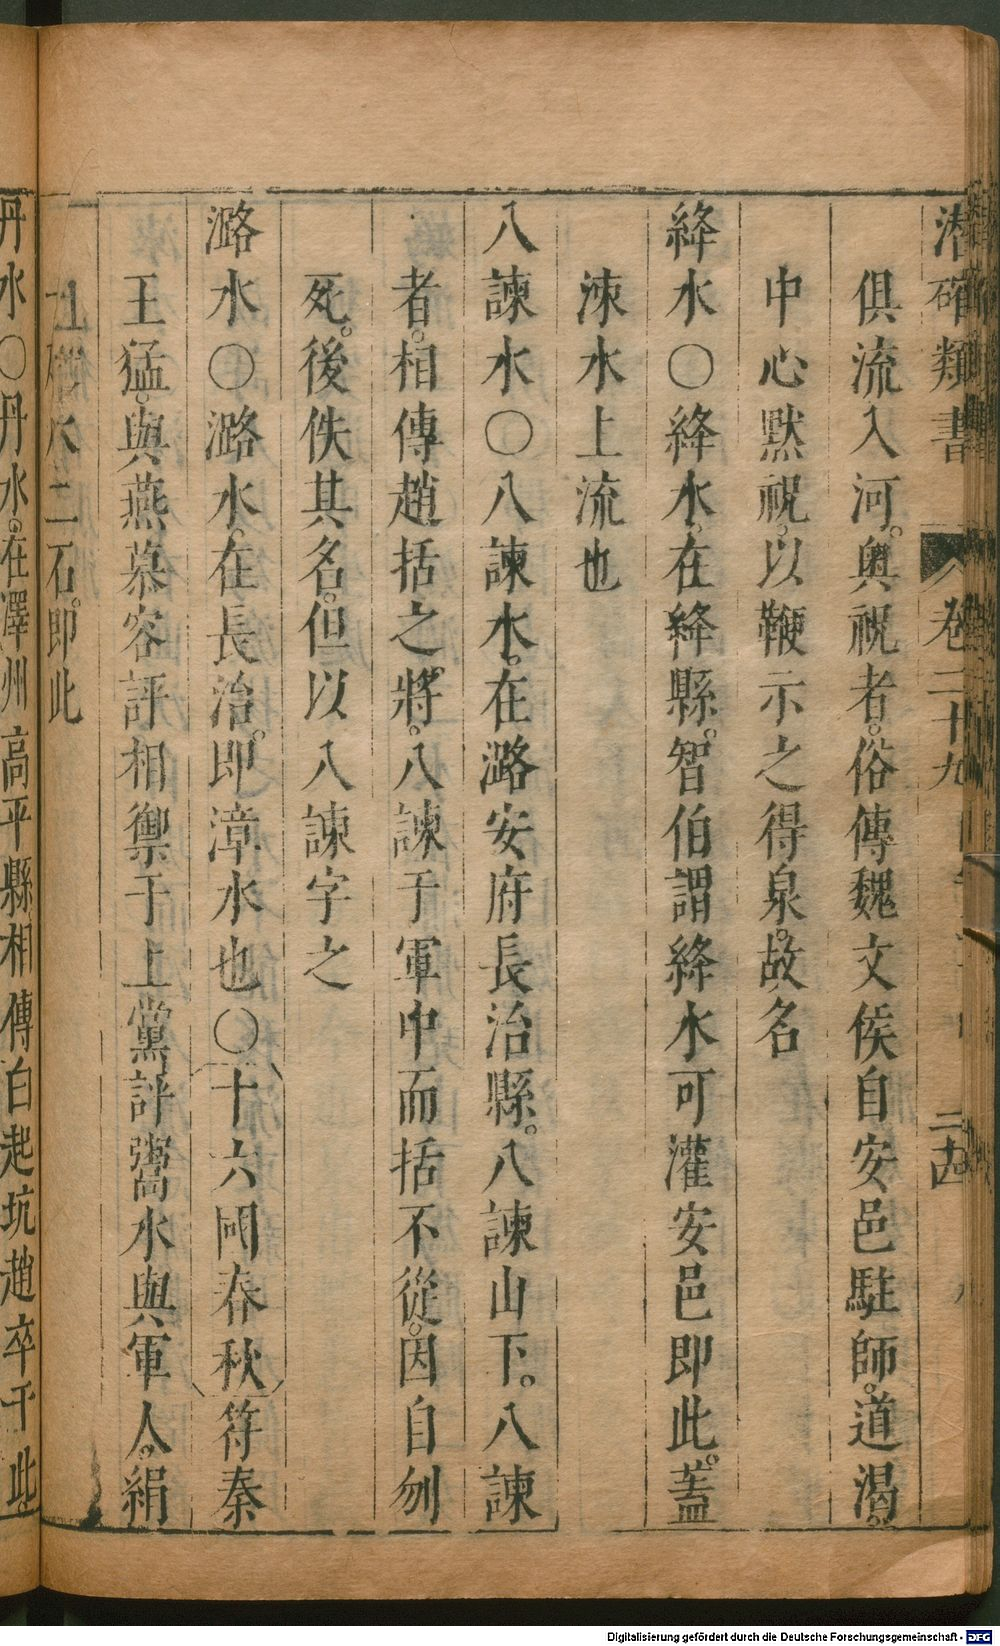 潛確類書 卷二十九 二十四
俱流入河。輿視者。俗傳魏文侯自安邑駐師。道渴。
中心黙視。以鞭示之得泉。故名
絳水〇絳水。在絳縣。智伯謂絳水可灌安邑即此。蓋
涑水上流也
八諫水〇八諫水。在潞安府長治縣。八諫山下。八諫
者。相傳趙括之將。八諫于軍中而括不從。因自刎
死。後佚其名。但以八諫字之
潞水〇潞水。在長治。即漳水也〇十六國春秋符秦
王猛。與燕慕容評相禦于上黨評鬻水與軍人。絹
一匹水二石。即此
丹水〇丹水。在澤州高平縣相傳白起坑趙卒于此
Digitalisierung gefördert durch die Deutsche Forschungsgemeinschaft - DFG